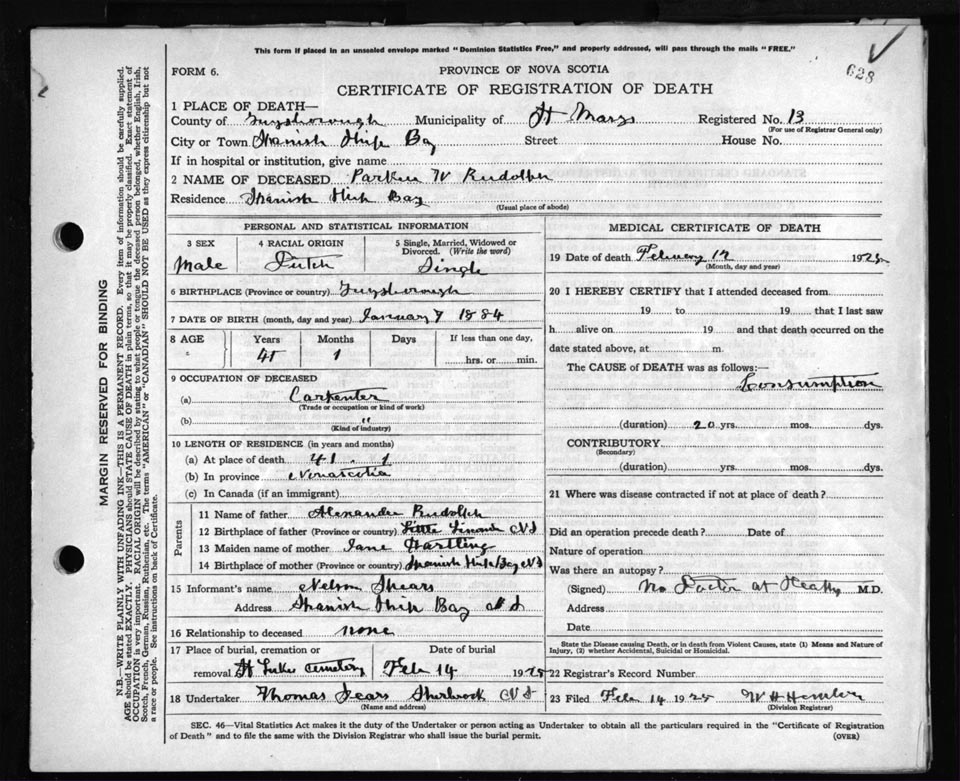 This form if placed in an unsealed envelope marked "Dominion Statistics Free," and properly addressed, will pass through the mails "FREE."
628
FORM 6.
PROVINCE OF NOVA SCOTIA
CERTIFICATE OF REGISTRATION OF DEATH
1 PLACE OF DEATH—
County of Guysborough Municipality of St Marys Registered No. 13
(For use of Registrar General only)
City or Town Spanish Ship Bay Street House No.
If in hospital or institution, give name
2 NAME OF DECEASED Parker W Rudolph
Residence Spanish Ship Bay
(Usual place of abode)
PERSONAL AND STATISTICAL INFORMATION
3 SEX 4 RACIAL ORIGIN 5 Single, Married, Widowed or Divorced. (Write the word)
Male Dutch Single
6 BIRTHPLACE (Province or country) Guysborough
7 DATE OF BIRTH (month, day and year) January 7 1884
8 AGE Years Months Days If less than one day,
41 1 hrs. or min.
9 OCCUPATION OF DECEASED
(a) Carpenter
(Trade or occupation or kind of work)
(b) "
(Kind of industry)
10 LENGTH OF RESIDENCE (in years and months)
(a) At place of death 41 . 1
(b) In province Novascotia
(c) In Canada (if an immigrant)
Parents
11 Name of father Alexander Rudolph
12 Birthplace of father (Province or country) Little NS
13 Maiden name of mother Jane Hartling
14 Birthplace of mother (Province or country) Spanish Ship Bay NS
15 Informant's name Nelson
Address Spanish Ship Bay N S
16 Relationship to deceased none
17 Place of burial, cremation or removal Date of burial
St Lukes Cemetery Feb 14 1925
18 Undertaker Thomas Sherbrook N S
(Name and address)
MEDICAL CERTIFICATE OF DEATH
19 Date of death February 12 1925
(Month, day and year)
20 I HEREBY CERTIFY that I attended deceased from
19 to 19 that I last saw
h alive on 19 and that death occurred on the
date stated above, at m.
The CAUSE of DEATH was as follows:—
Consumption
(duration) 20 yrs. mos. dys.
CONTRIBUTORY
(Secondary)
(duration) yrs. mos. dys.
21 Where was disease contracted if not at place of death?
Did an operation precede death? Date of
Nature of operation
Was there an autopsy?
(Signed) No Doctor at Death M.D.
Address
Date
State the Disease causing Death, or in death from Violent Causes, state (1) Means and Nature of
Injury, (2) whether Accidental, Suicidal or Homicidal.
22 Registrar's Record Number
23 Filed Feb 14 1925 W H
(Division Registrar)
SEC. 46—Vital Statistics Act makes it the duty of the Undertaker or person acting as Undertaker to obtain all the particulars required in the "Certificate of Registration
of Death" and to file the same with the Division Registrar who shall issue the burial permit. (OVER)
MARGIN RESERVED FOR BINDING
N.B.—WRITE PLAINLY WITH UNFADING INK—THIS IS A PERMANENT RECORD. Every item of information should be carefully supplied.
AGE should be stated EXACTLY. PHYSICIANS should STATE CAUSE OF DEATH in plain terms, so that it may be properly classified. Exact statement of
OCCUPATION is very important. RACIAL ORIGIN will be described by stating to what people or tongue the deceased person belonged, whether English, Irish,
Scotch, French, German, Russian, Ruthenian, etc. The terms "AMERICAN" or "CANADIAN" SHOULD NOT BE USED as they express citizenship but not
a race or people. See instructions on back of Certificate.